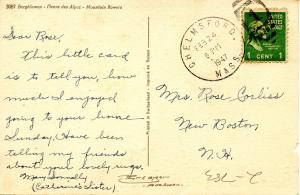 3087 Bergblumen - Fleurs des Alpes - Mountain flowers
Dear Rose,
This little card
is to tell you, how
much I enjoyed
going to your home
Sunday. Have been
telling my friends
about your lovely rugs.
Mary Donnelly
(Catherine's Sister)
CHELMSFORD.
FEB 24
6 PM
1947
MASS.
UNITED STATES POSTAGE
1 CENT 1
Mrs. Rose Corliss
New Boston
N.H.